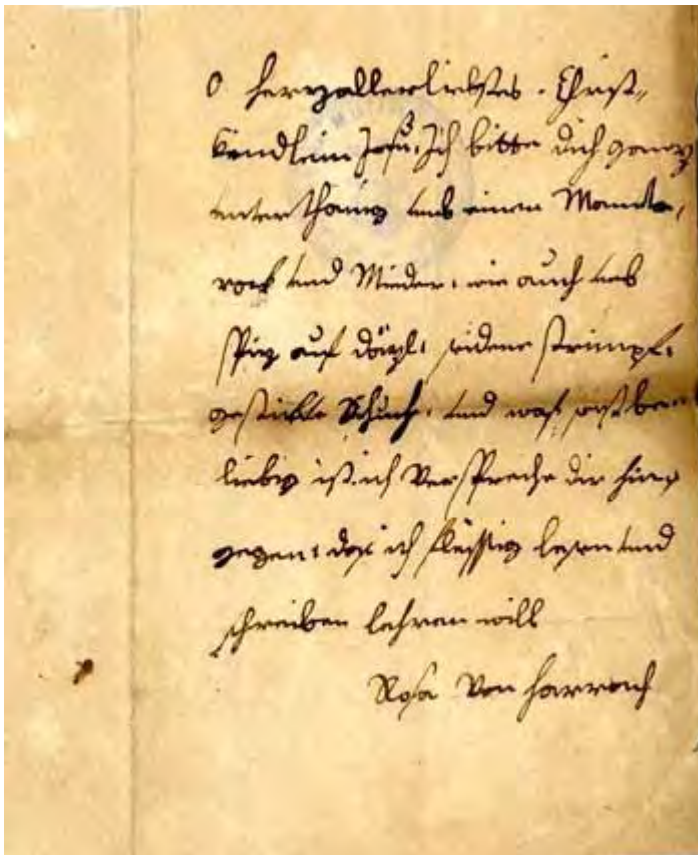 O herzallerliebstes. Christ„
Kindlein Jesu, Ich bitte dich ganz
unterthänig umb einen Mante,
rock und Mieder, wie auch umb
Spiz auf dözl, seidene strimpf,
gestickte Schuch, und waß sonst
liebig ist. ich Verspreche dir hin„
gegen, daß ich fleissig lesen und
schreiben lehren will
Rosa Von Harrach